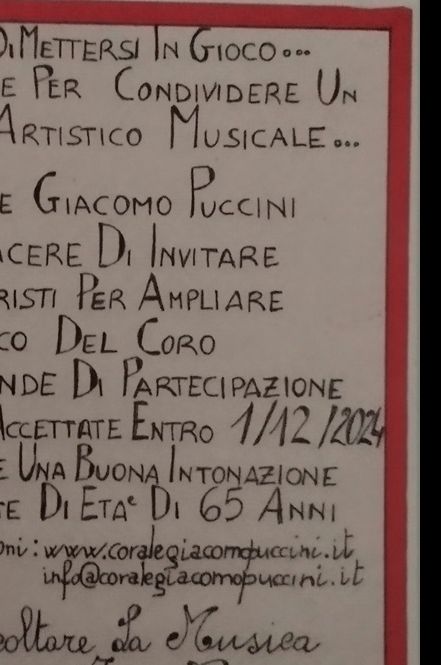 Di Mettersi In Gioco...
e Per Condividere Un
Artistico Musicale...
e Giacomo Puccini
acere Di Invitare
risti Per Ampliare
co Del Coro
nde Di Partecipazione
Accettate Entro 1/12/2024
e Una Buona Intonazione
te Di Eta' Di 65 Anni
oni: www.coralegiacomopuccini.it
info@coralegiacomopuccini.it
coltare La Musica